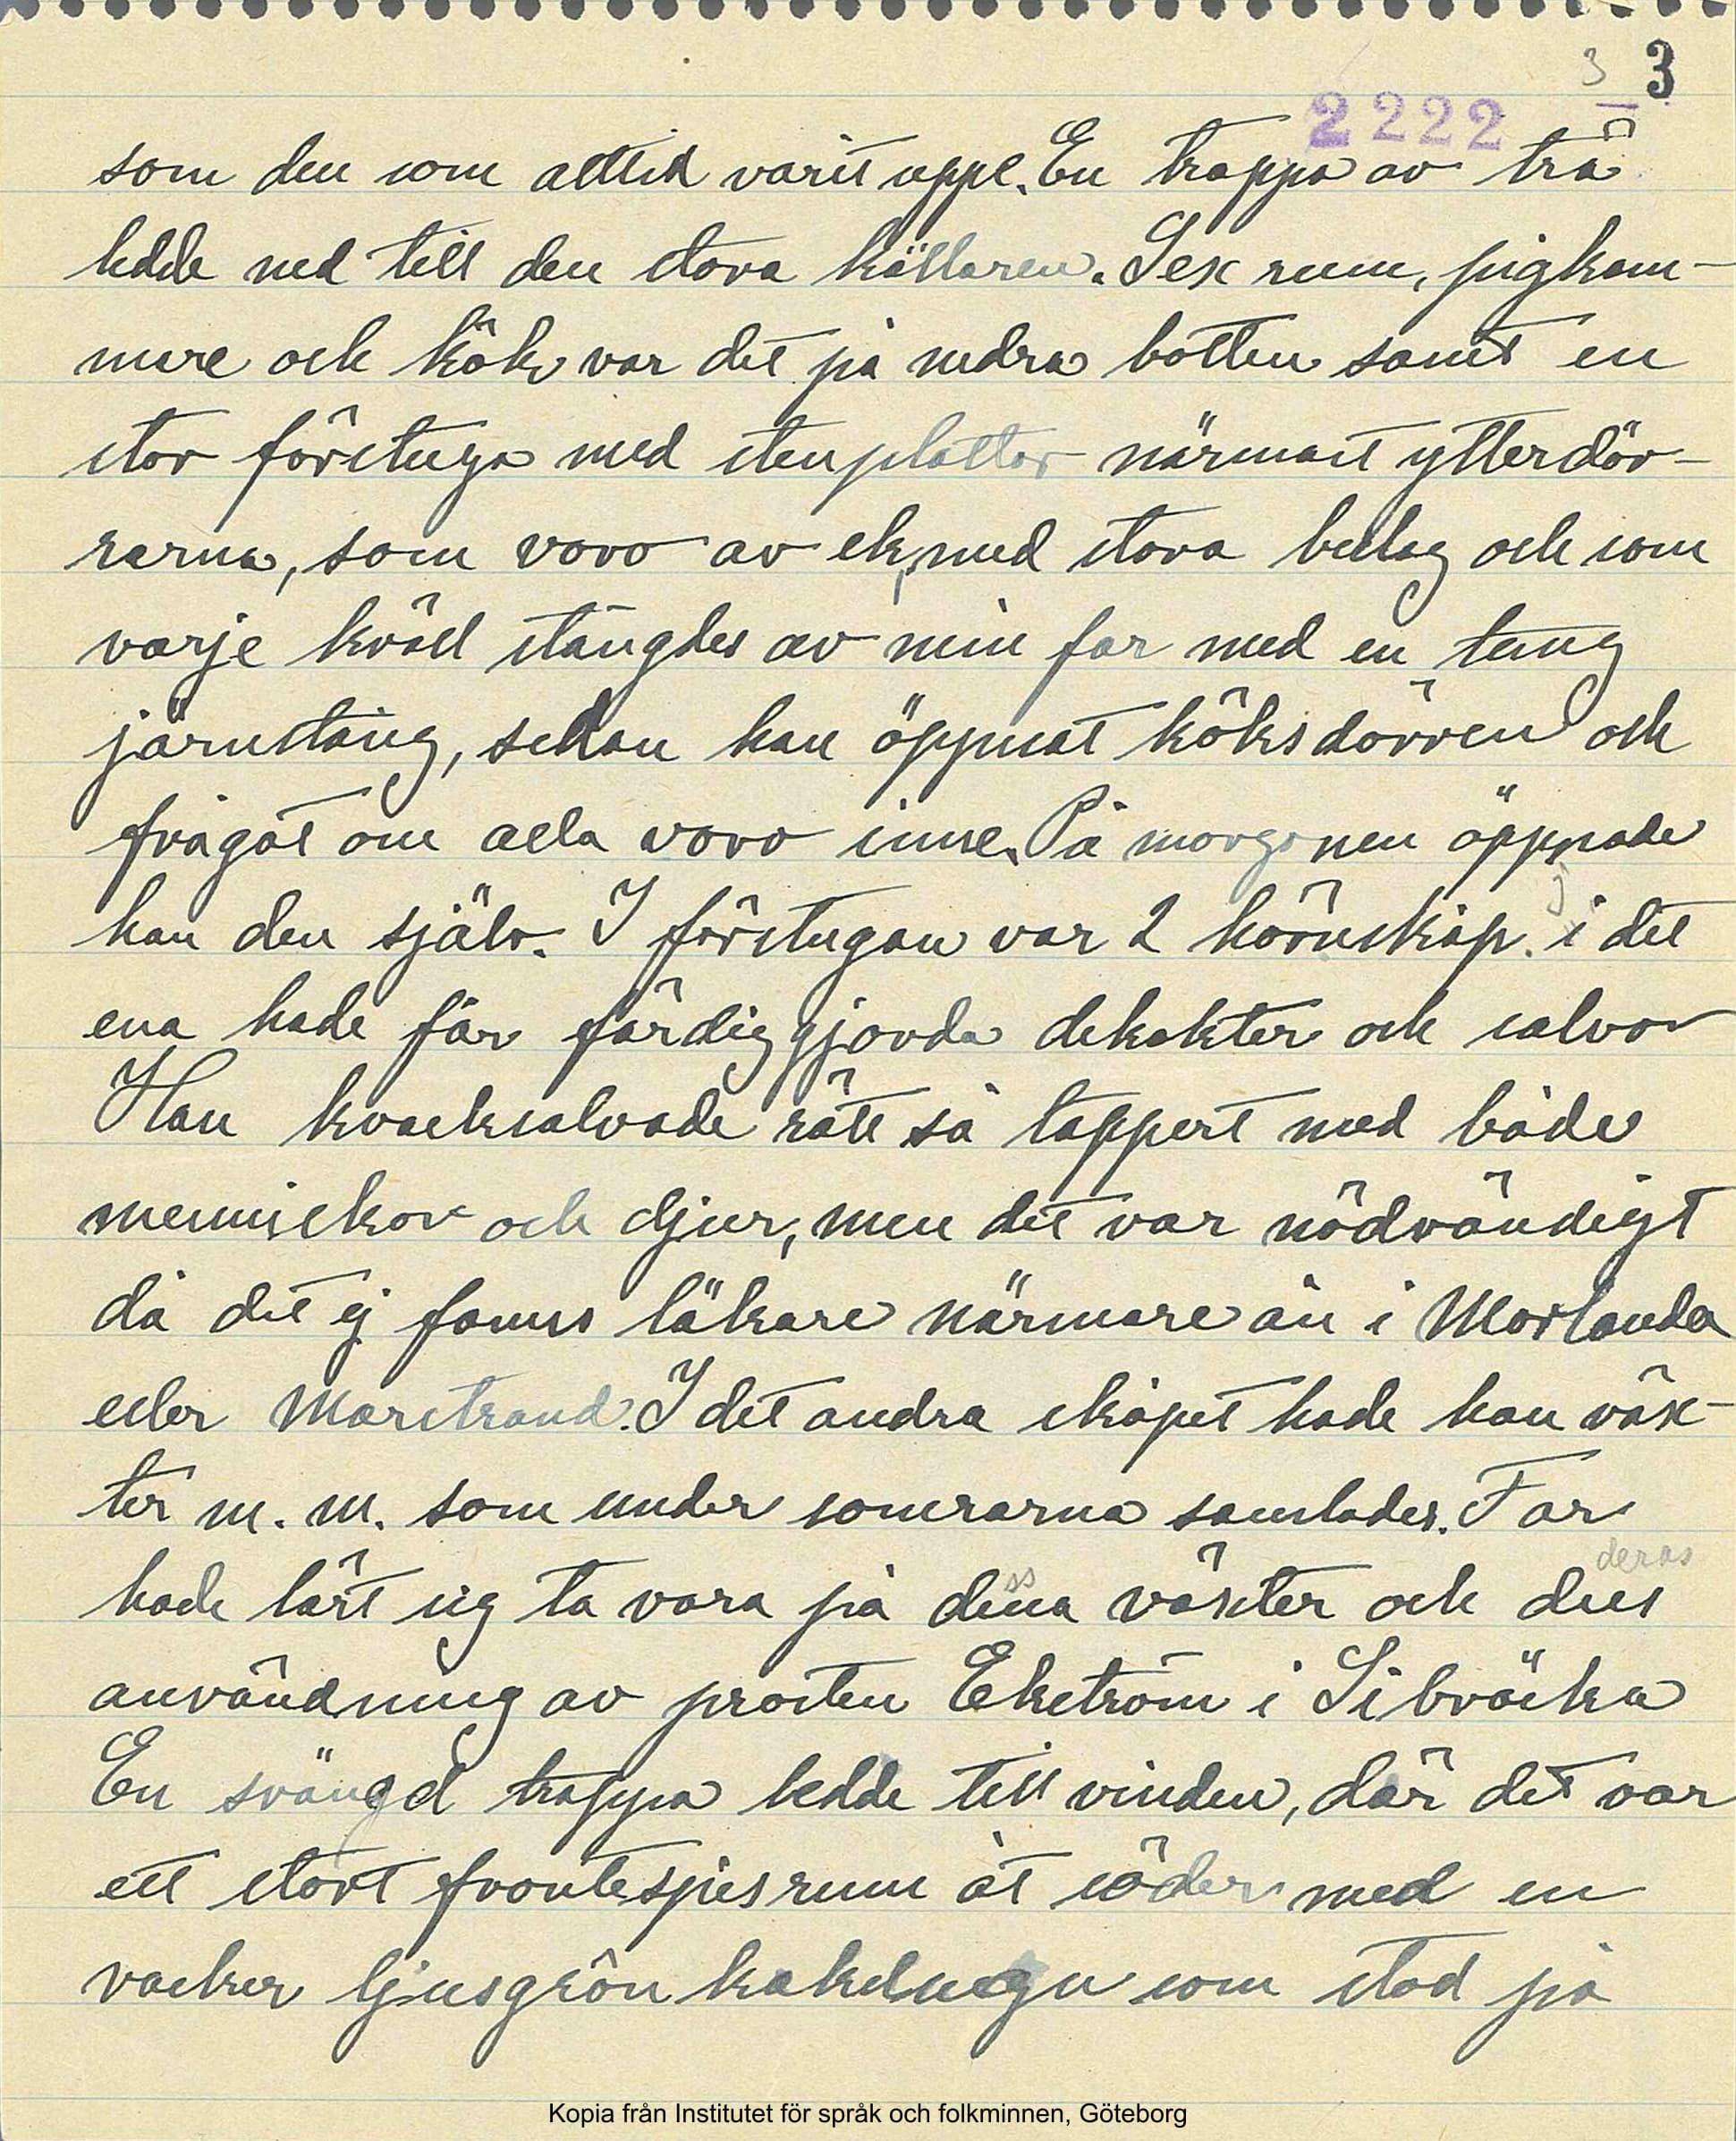 3 3
2222
som den som alltid varit uppe. En trappa av trä
ledde ned till den stora källaren. Sex rum, pigkam-
mare och kök var det på nedra botten samt en
stor förstuga med stenplattor närmast ytterdör-
rarna, som voro av ek, med stora beslag och som
varje kväll stängdes av min far med en tung
järnstång, sedan han öppnat köksdörren och
frågat om alla voro inne. På morgonen öppnade
han den själv. I förstugan var 2 hörnskåp. i det
ena hade far färdiggjorda dekokter och salvor
Han kvacksalvade rätt så tappert med både
menniskor och djur, men det var nödvändigt
då det ej fanns läkare närmare än i Morlanda
eller Marstrand. I det andra skåpet hade han väx-
ter m. m. som under somrarna samlades. Far
deras
hade lärt sig ta vara på dessa växter och dess
användning av prosten Ekström i Sibräcka
En svängd trappa ledde till vinden, där det var
ett stort frontespisrum åt söder med en
vacker ljusgrön kakelugn som stod på
Kopia från Institutet för språk och folkminnen, Göteborg